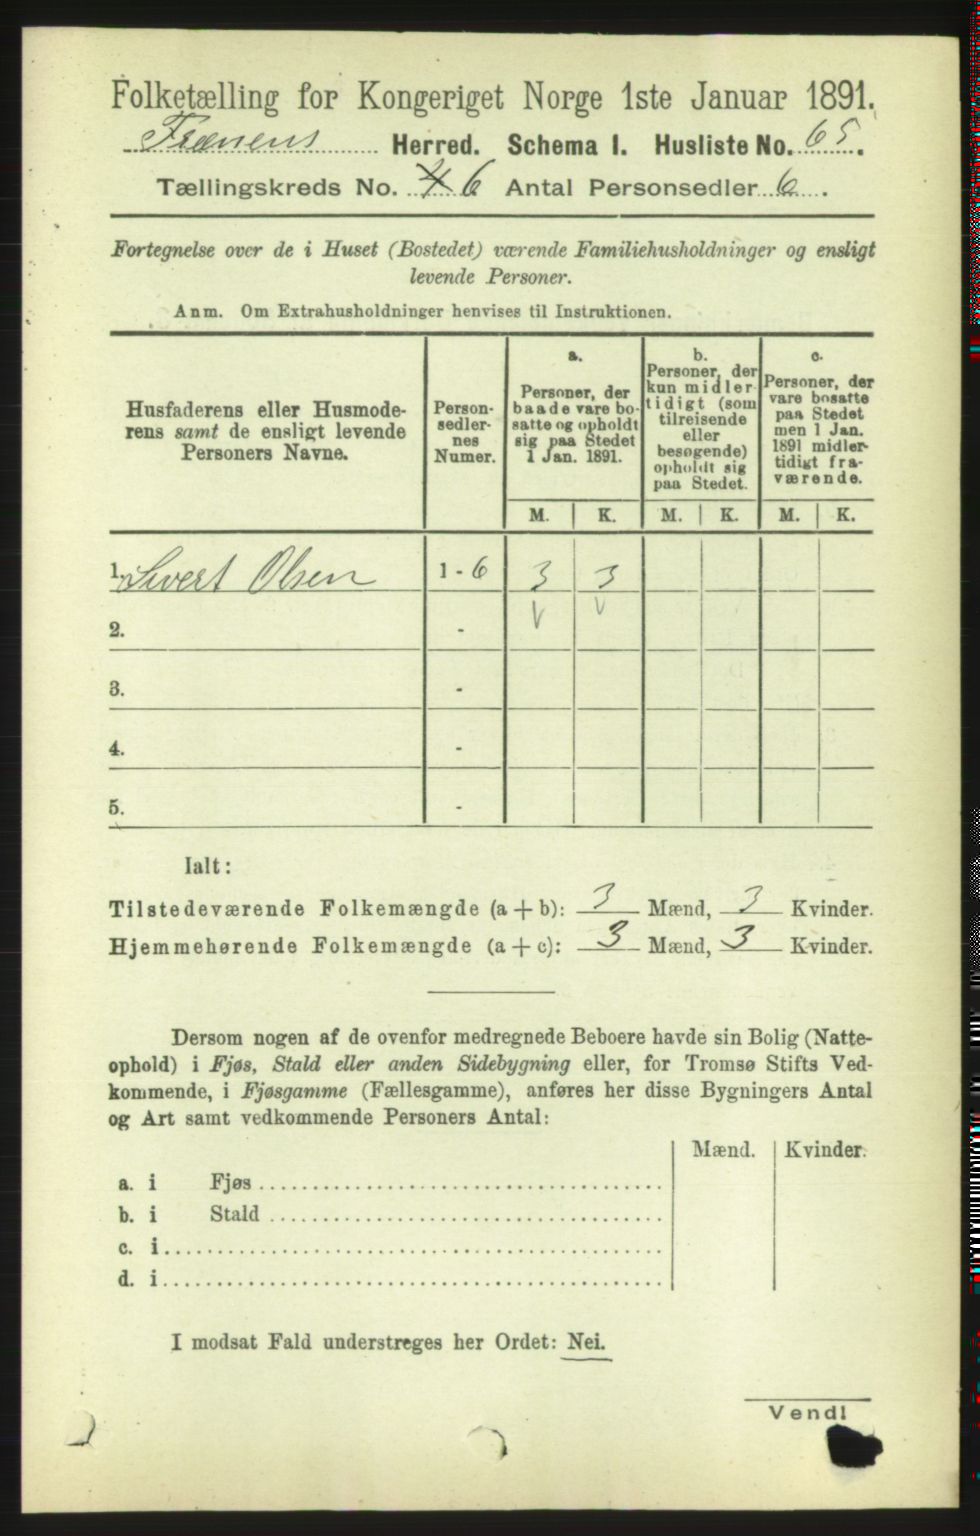 Folketælling for Kongeriget Norge 1ste Januar 1891.
Frænens Herred. Schema I. Husliste No. 65.
Tællingskreds No. 6 Antal Personsedler 6.
Fortegnelse over de i Huset (Bostedet) værende Familiehusholdninger og ensligt
levende Personer.
Anm. Om Extrahusholdninger henvises til Instruktionen.
Husfaderens eller Husmode-
rens samt de ensligt levende
Personers Navne.
Person-
sedler-
nes
Numer.
a.
Personer, der
baade vare bo-
satte og opholdt
sig paa Stedet
1 Jan. 1891.
b.
Personer, der
kun midler-
tidigt (som
tilreisende
eller
besøgende)
opholdt sig
paa Stedet.
c.
Personer, der
vare bosatte
paa Stedet
men 1 Jan.
1891 midler-
tidigt fra-
værende.
M. K. M. K. M. K.
1. Sivert Olsen 1 - 6 3 3
2. -
3. -
4. -
5. -
Ialt:
Tilstedeværende Folkemængde (a + b): 3 Mænd, 3 Kvinder.
Hjemmehørende Folkemængde (a + c): 3 Mænd, 3 Kvinder.
Dersom nogen af de ovenfor medregnede Beboere havde sin Bolig (Natte-
ophold) i Fjøs, Stald eller anden Sidebygning eller, for Tromsø Stifts Ved-
kommende, i Fjøsgamme (Fællesgamme), anføres her disse Bygningers Antal
og Art samt vedkommende Personers Antal:
Mænd. Kvinder.
a. i Fjøs
b. i Stald
c. i
d. i
I modsat Fald understreges her Ordet: Nei.
Vend!